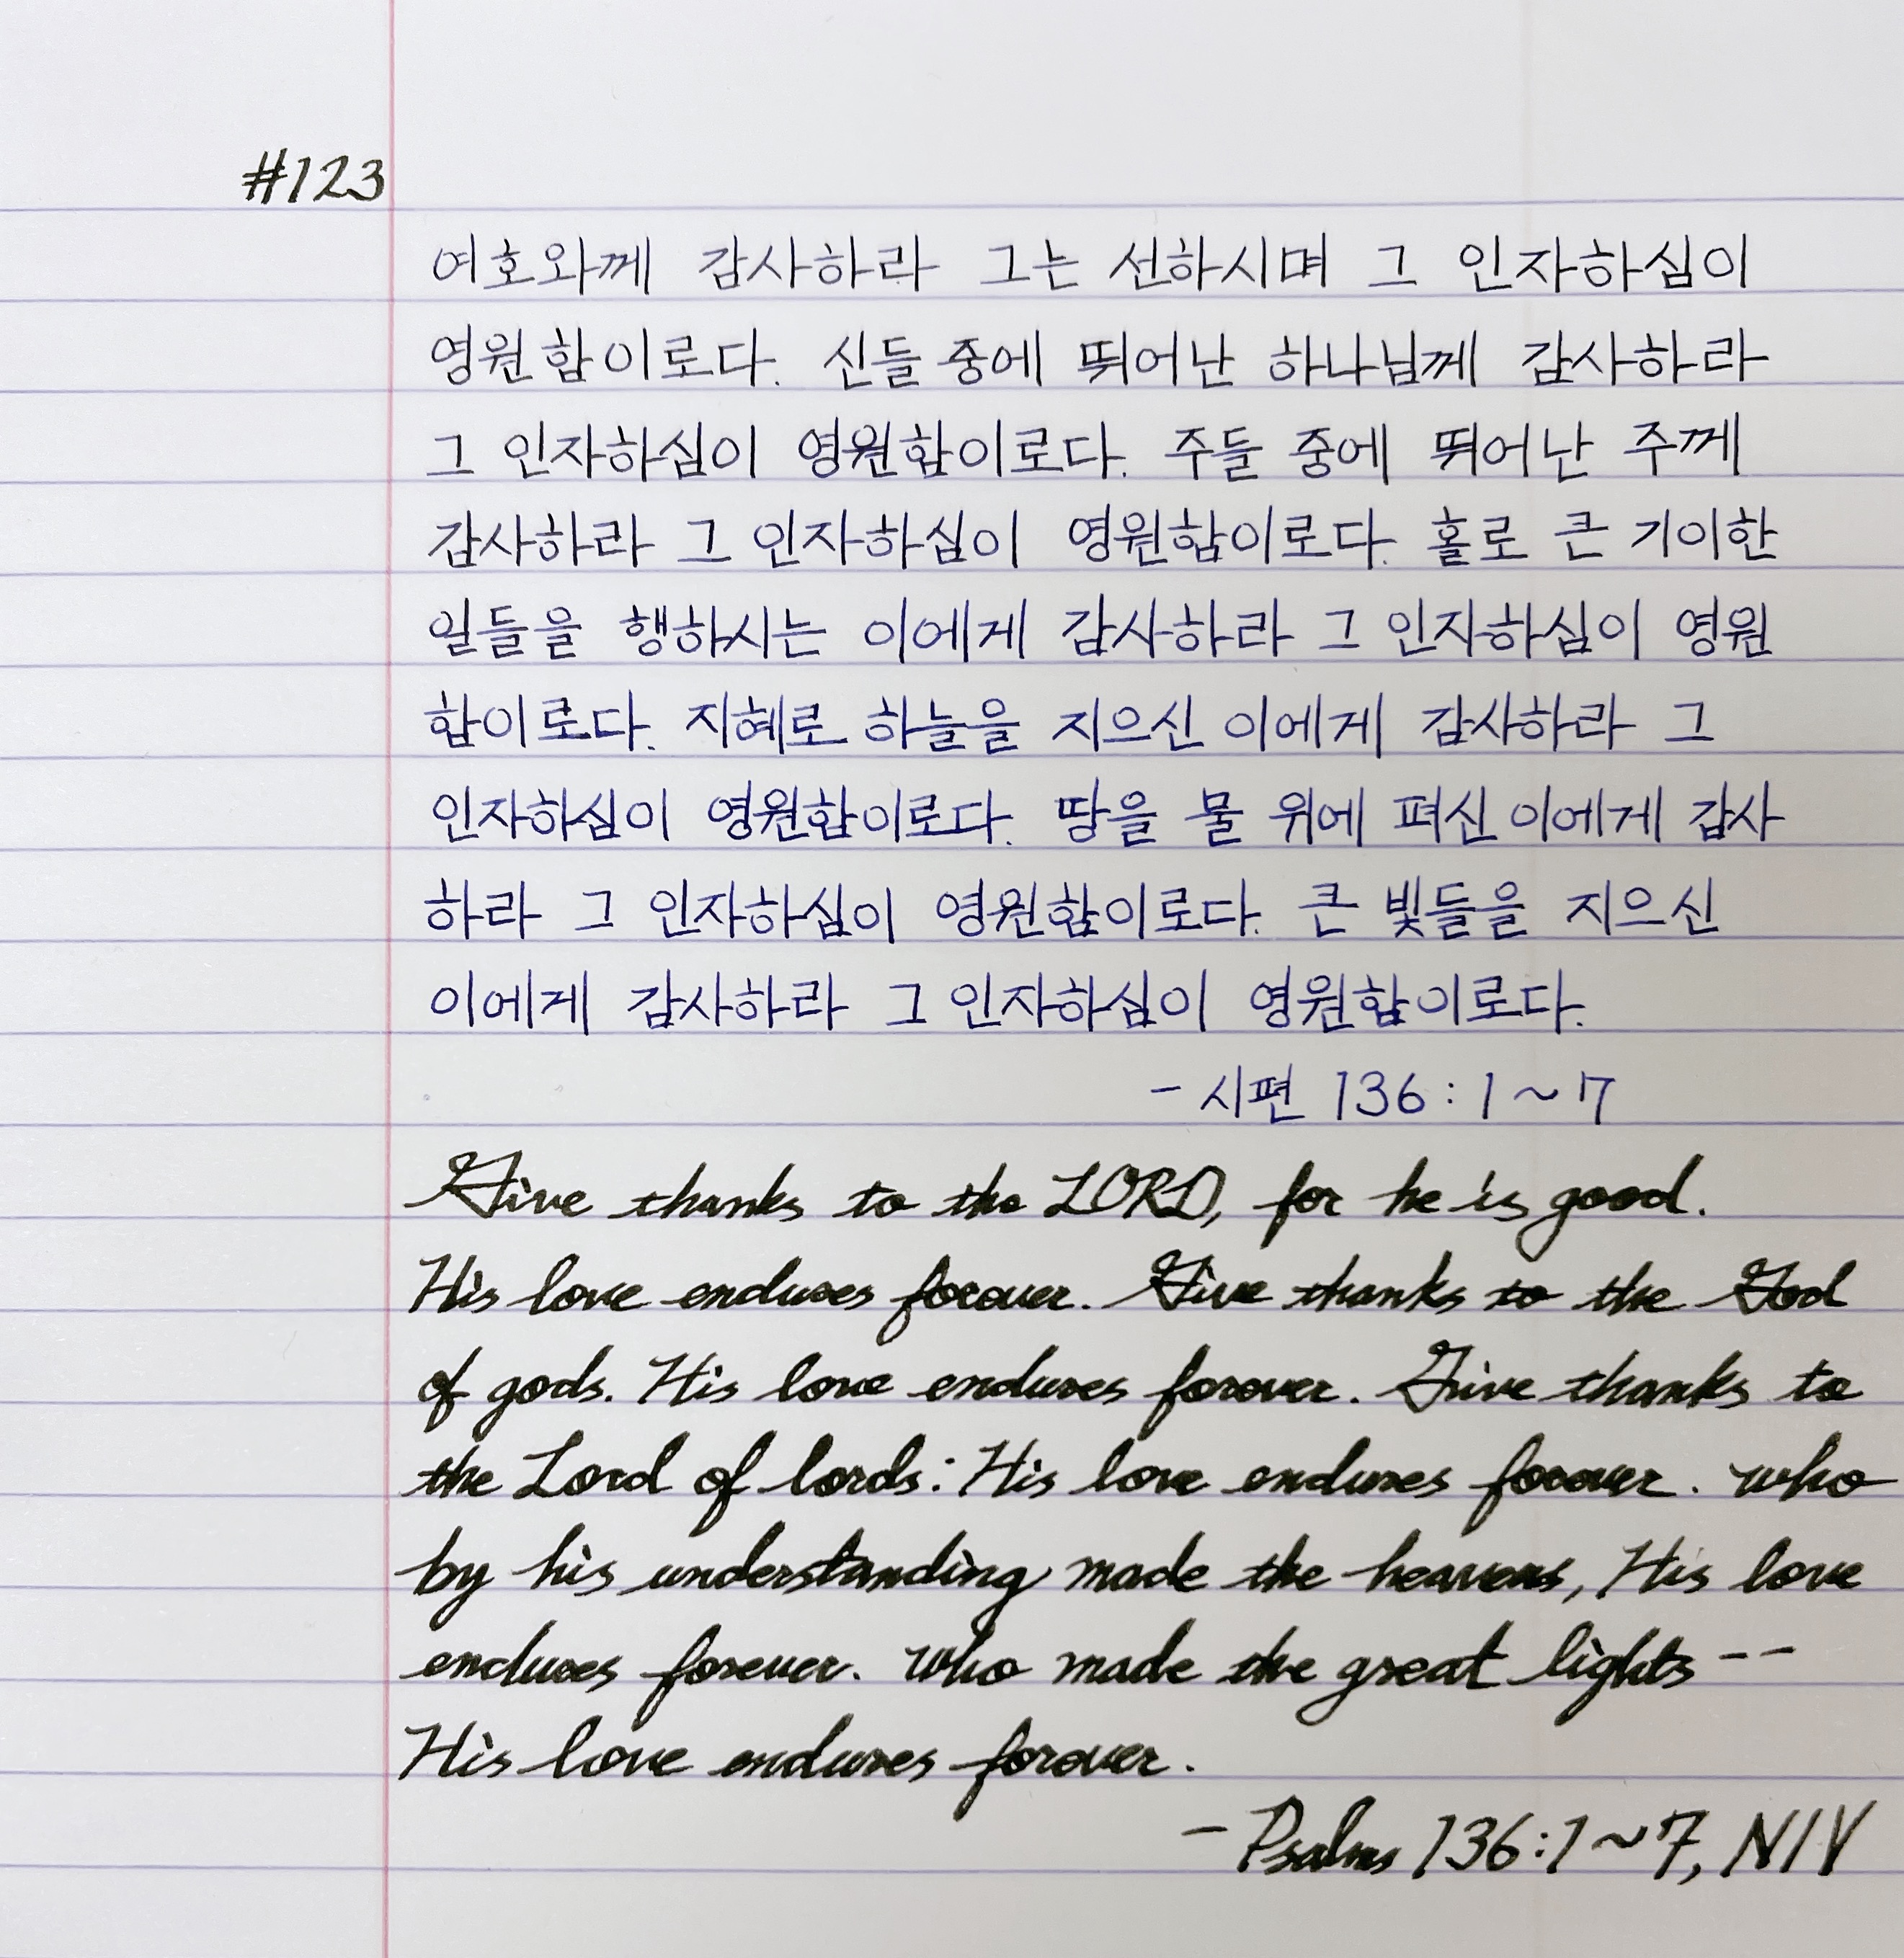 #123
여호와께 감사하라 그는 선하시며 그 인자하심이
영원함이로다. 신들 중에 뛰어난 하나님께 감사하라
그 인자하심이 영원함이로다. 주들 중에 뛰어난 주께
감사하라 그 인자하심이 영원함이로다. 홀로 큰 기이한
일들을 행하시는 이에게 감사하라 그 인자하심이 영원
함이로다. 지혜로 하늘을 지으신 이에게 감사하라 그
인자하심이 영원함이로다. 땅을 물 위에 펴신 이에게 감사
하라 그 인자하심이 영원함이로다. 큰 빛들을 지으신
이에게 감사하라 그 인자하심이 영원함이로다.
- 시편 136:1~7
Give thanks to the LORD, for he is good.
His love endures forever. Give thanks to the God
of gods. His love endures forever. Give thanks to
the Lord of lords: His love endures forever. who
by his understanding made the heavens, His love
endures forever. who made the great lights--
His love endures forever.
- Psalms 136:1~7, NIV